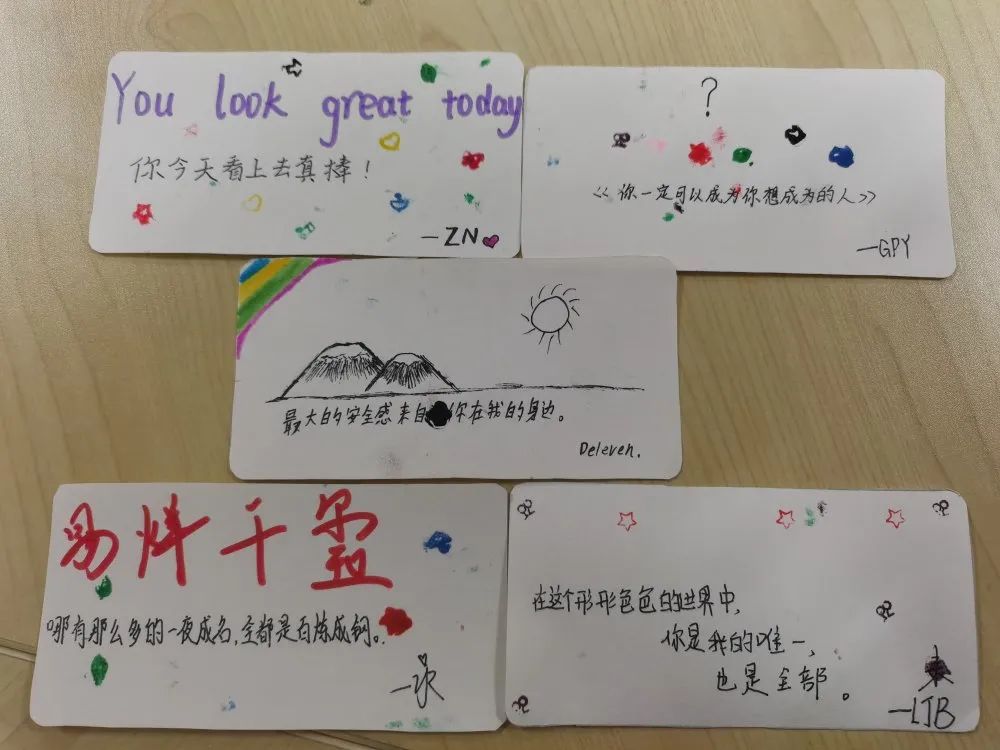 You look great today
你今天看上去真棒！
—ZN
?
<<你一定可以成为你想成为的人>>
—GPY
最大的安全感来自你在我的身边。
Deleven.
易烊千玺
哪有那么多的一夜成名,全都是百炼成钢。
在这个形形色色的世界中,
你是我的唯一,
也是全部。
—LJB